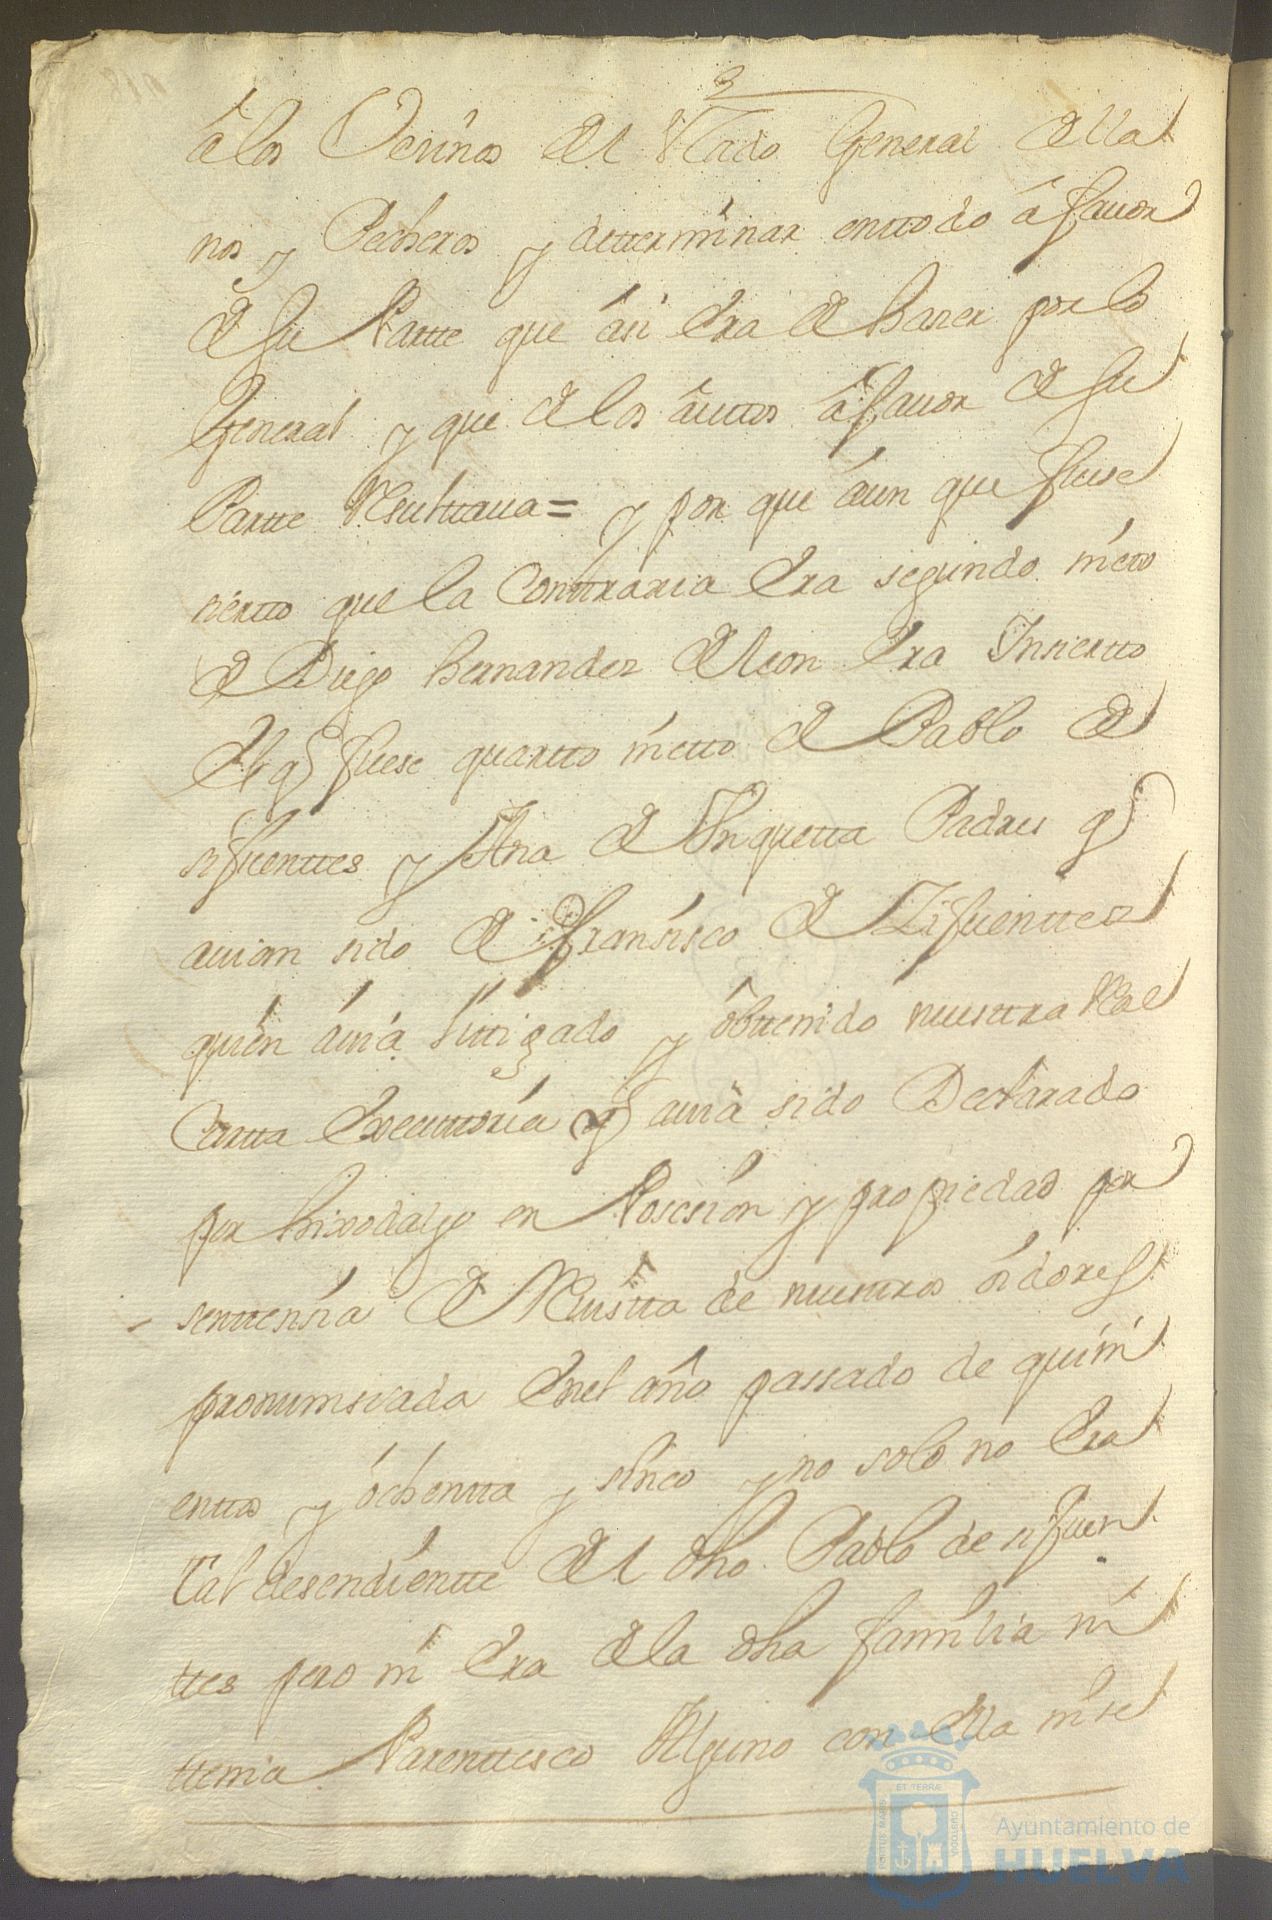 à los Vecinos del estado General Llla
nos y Pecheros y detterminar enttodo à favor
de su Partte que ási Era de hacer por lo
General y que de los áuttos à favor de su
Partte Resulttaua = y por que áun que fuese
cierto que la Conttraria Era segundo nietto
de Diego hernandez de leon Era Incierto
El q̃ fuese quartto nietto de Pablo de
sifuenttes y Ana de Anquetta Padres q̃
auian sido de Fransisco de Zifuenttes
quien áuia littigado y obttenido nuesttra Real
Cartta Executtoria q̃ auia sido Declarado
por hixodalgo en Posesion y propiedad por
senttensia de Reuistta de nuesttros oidores
pronunsiada Enel año passado de quini
enttos y óchentta y sinco y no solo no Era
tal desendientte del dho Pablo de sifuen
ttes pero ni Era de la dha familia ni
ttenia Parenttesco Alguno con Ella ni se
Ayuntamiento de
HUELVA